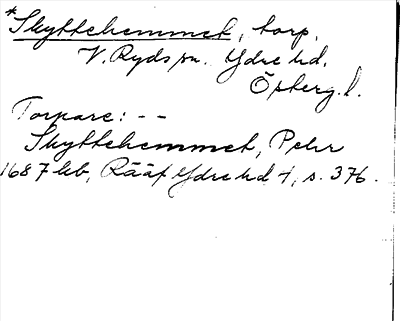 *Skyttehemmet, torp.
V. Ryds sn. Ydre hd.
Österg. l.
Torpare: --
Skyttehemmet, Pehr
1687 kb, Rääf Ydre hd 4, s. 376.